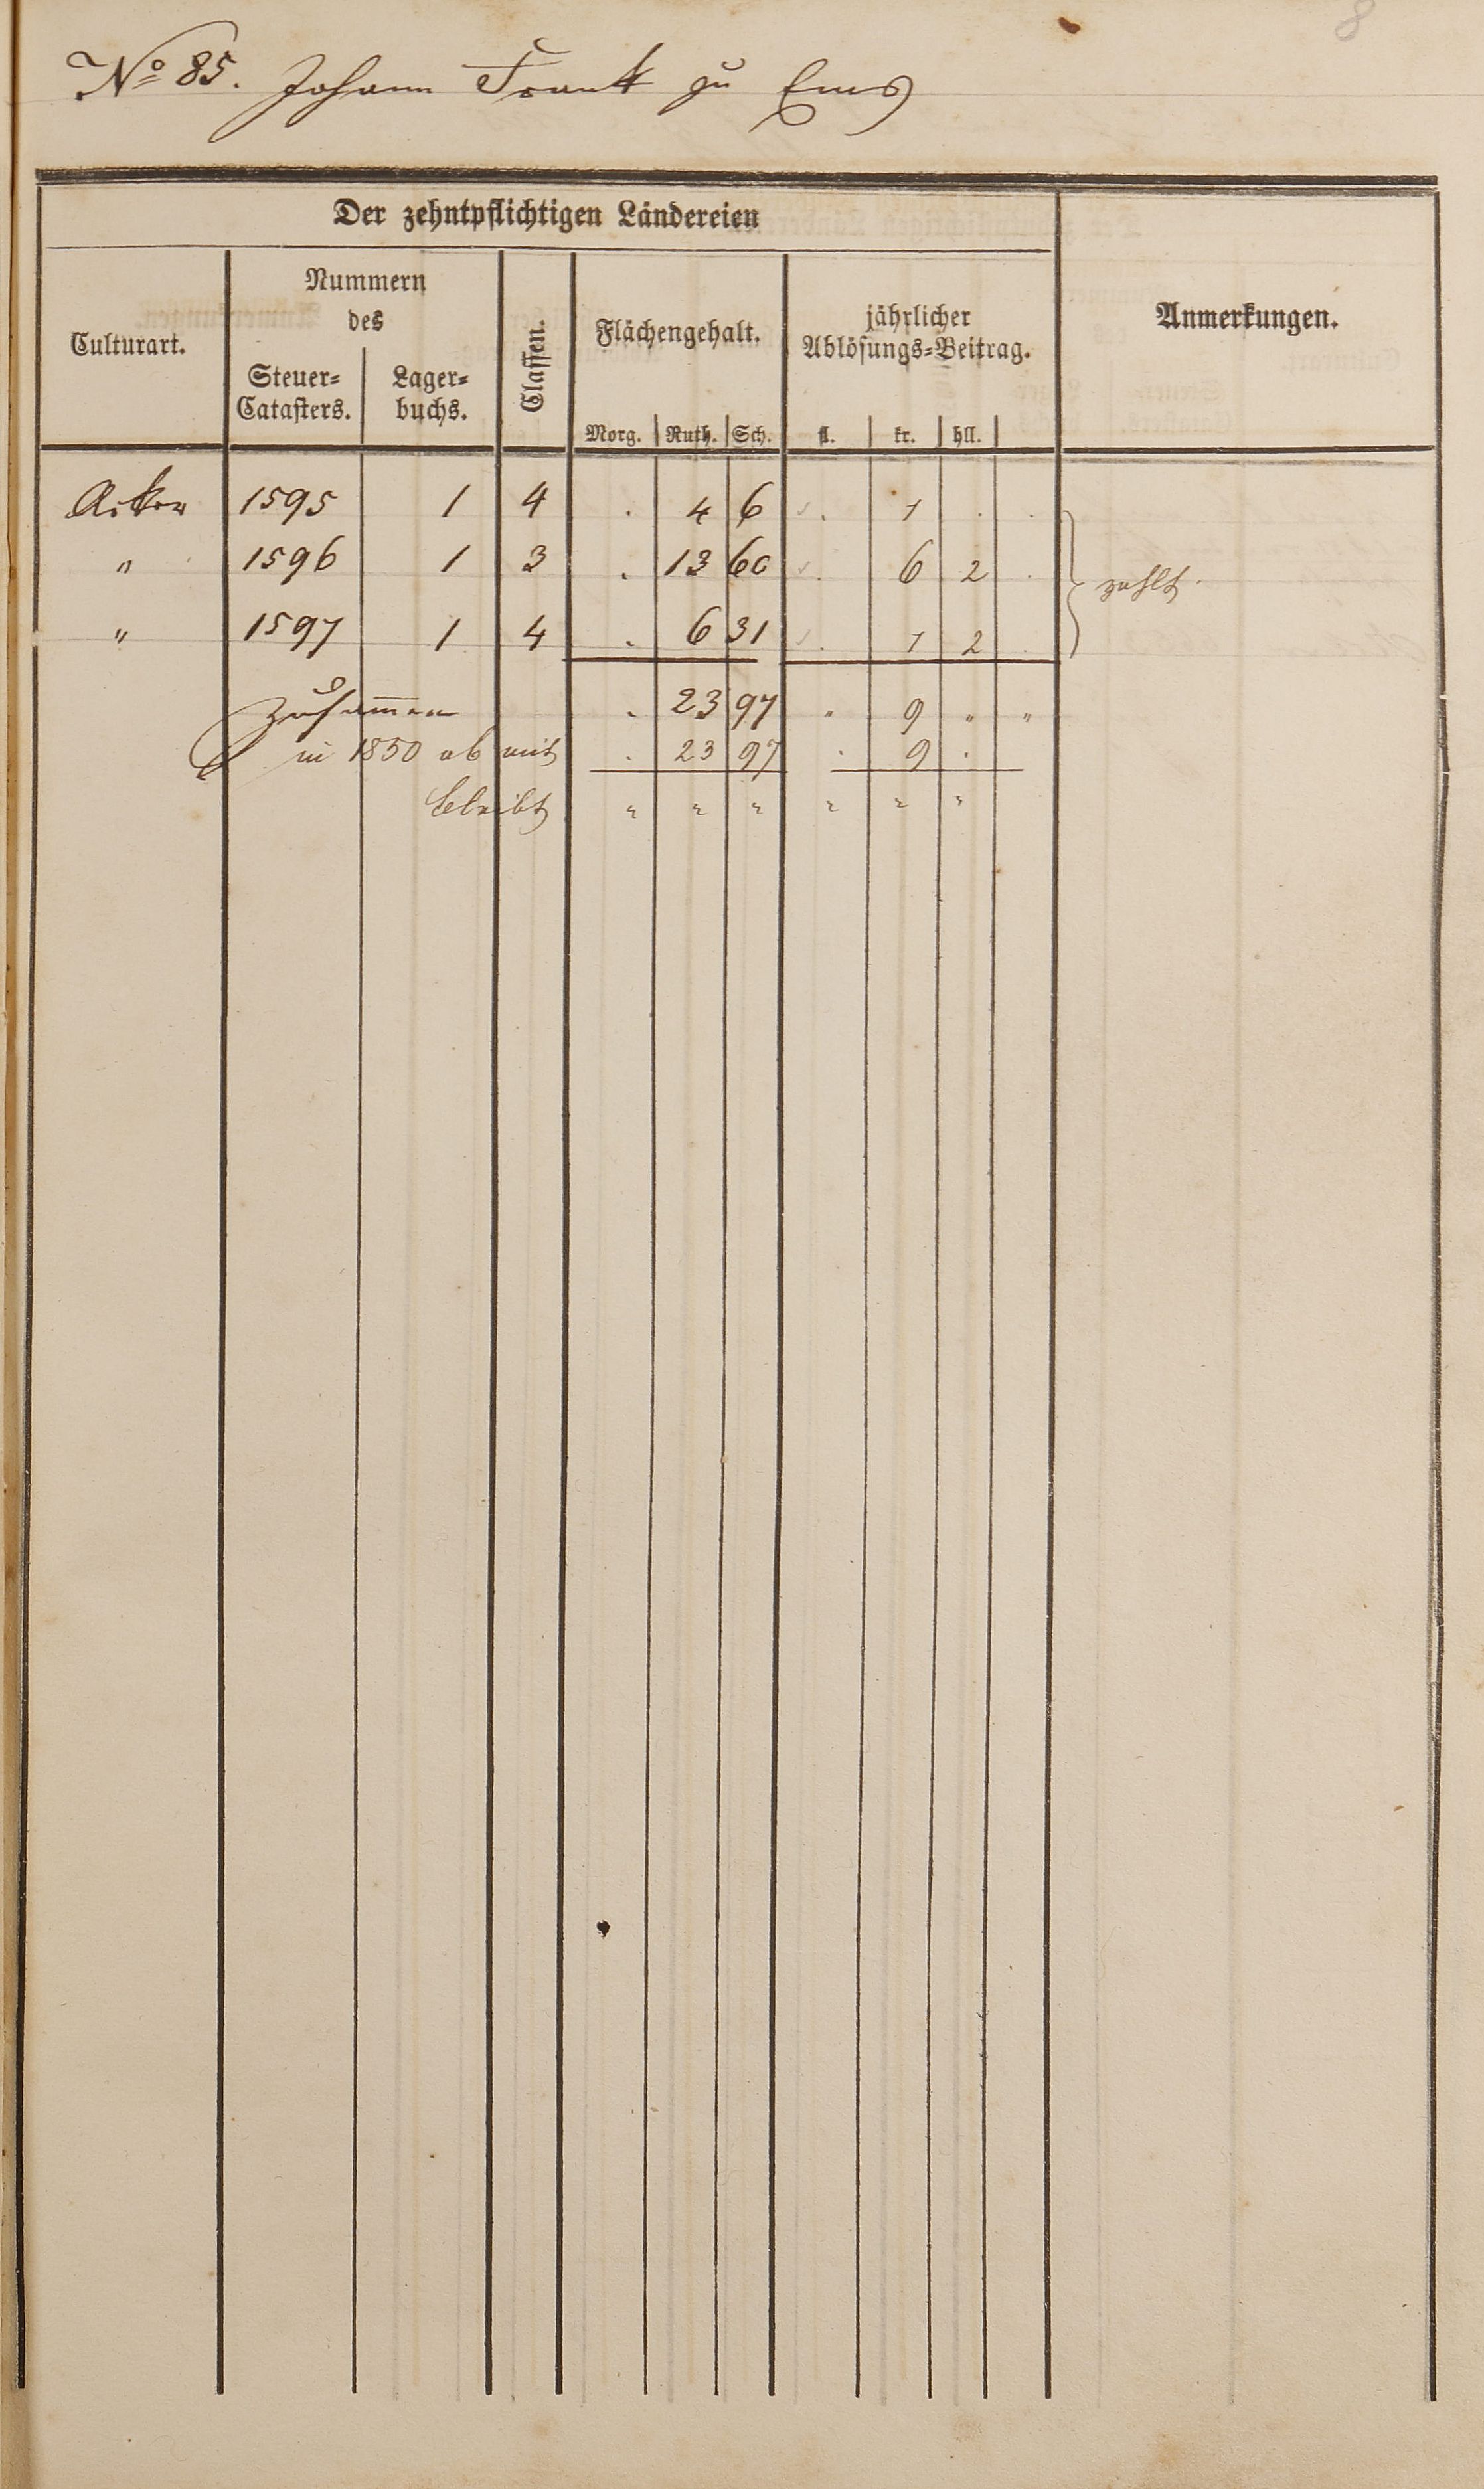 8
No 85. Johann Frank zu Ems
Der zehntpflichtigen Ländereien
Culturart. Nummern des Steuer-Catasters. Lagerbuchs. Classen. Flächengehalt. jährlicher Ablösungs-Beitrag. Anmerkungen.
Morg. Ruth. Sch. fl. kr. hll.
Acker 1595 1 4 . 4 6 . 1 . .
" 1596 1 3 . 13 60 . 6 2 . zahlt
" 1597 1 4 . 6 31 . 1 2 .
Zusammen . 23 97 " 9 " "
in 1850 ab mit . 23 97 . 9 .
bleibt " " " " " "